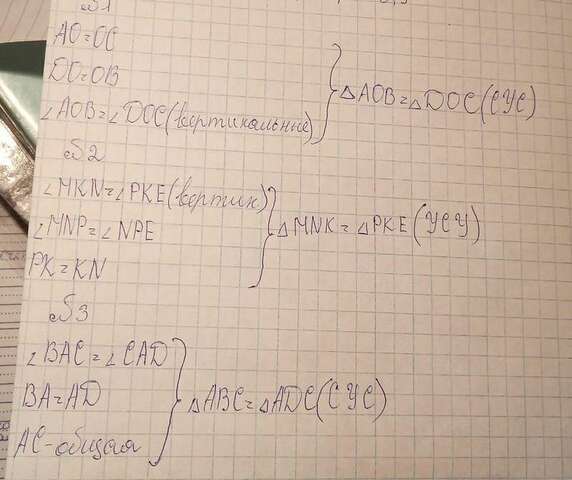 №1
AO=OC
DO=OB
∠AOB=∠DOC(вертикальные)
△AOB=△DOC(СУС)
№2
∠MKN=∠PKE(вертик)
∠MNP=∠NPE
PK=KN
△MNK=△PKE(УСУ)
№3
∠BAC=∠CAD
BA=AD
AC-общая
△ABC=△ADC(СУС)